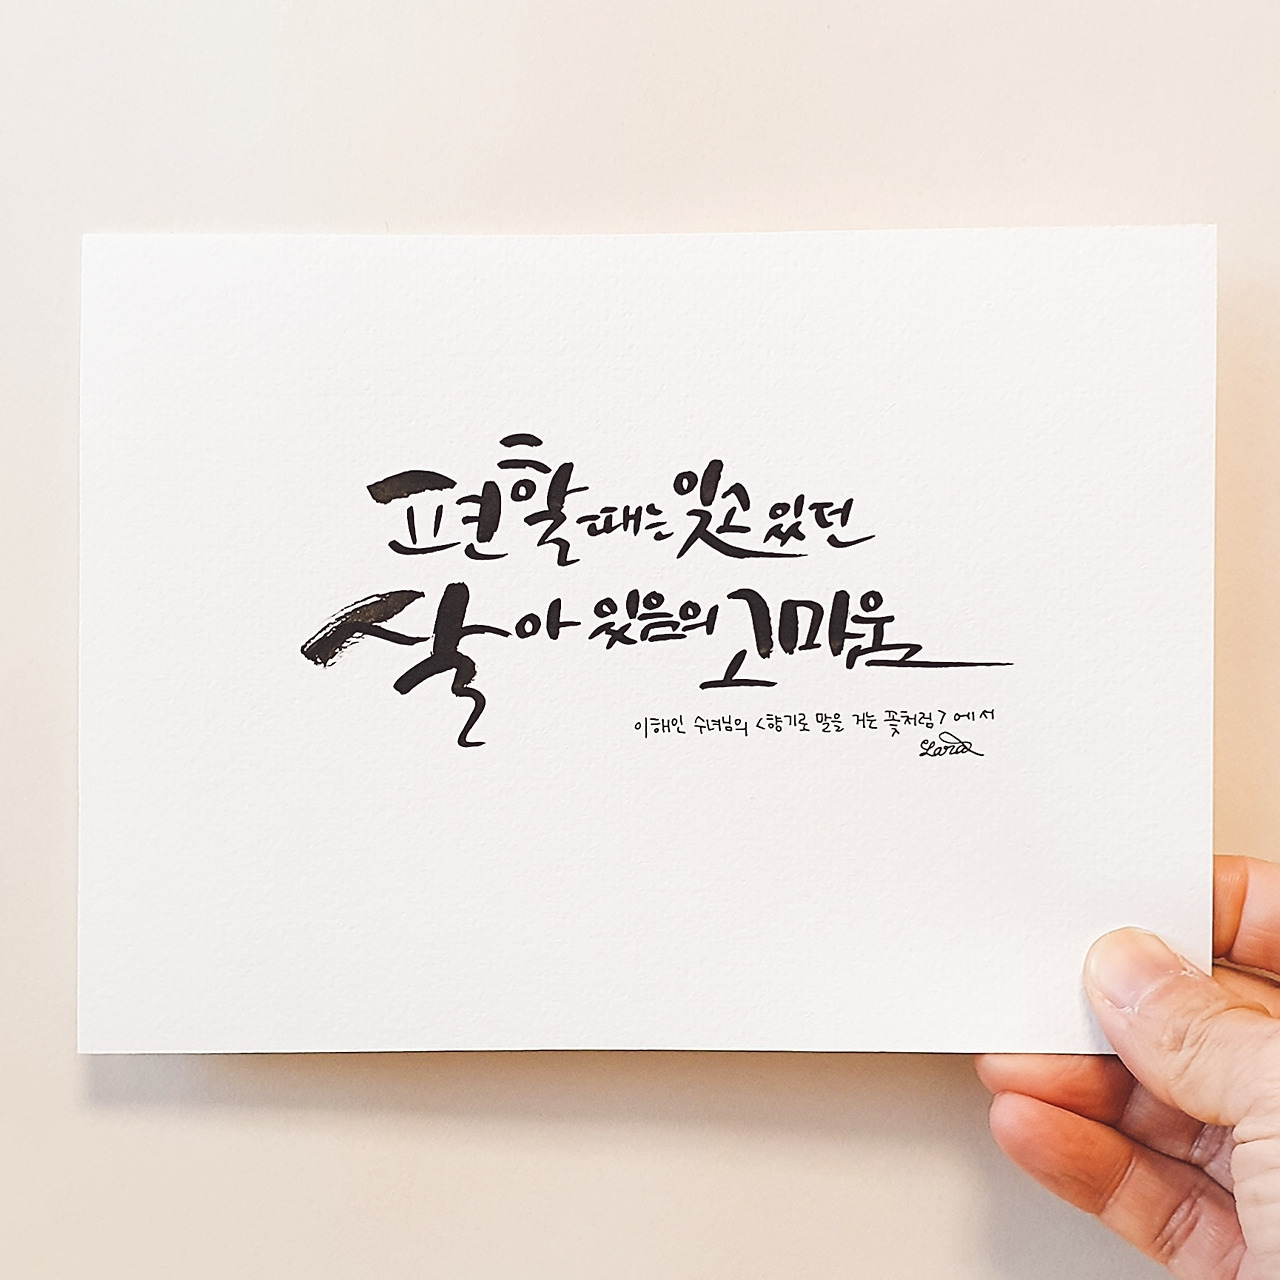 편할 때는 잊고 있던
살아 있음의 고마움
이해인 수녀님의 <향기로 말을 거는 꽃처럼> 에서
Lara